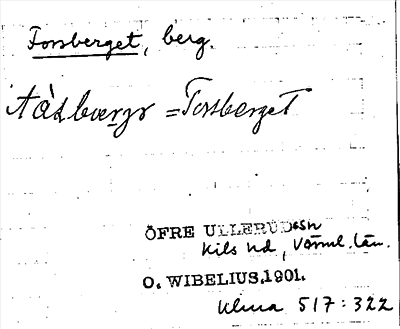 Forsberget, berg.
= Forsberget
ÖFRE ULLERUD sn
Kils hd, Värml. län.
O. WIBELIUS.1901.
517:322